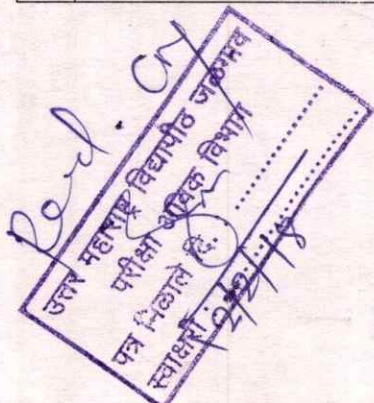 Recd. Cry
उत्तर महाराष्ट्र विद्यापीठ जळगाव
परीक्षा आवक विभाग
पत्र मिळाले दि. ..............
स्वाक्षरी : ..............